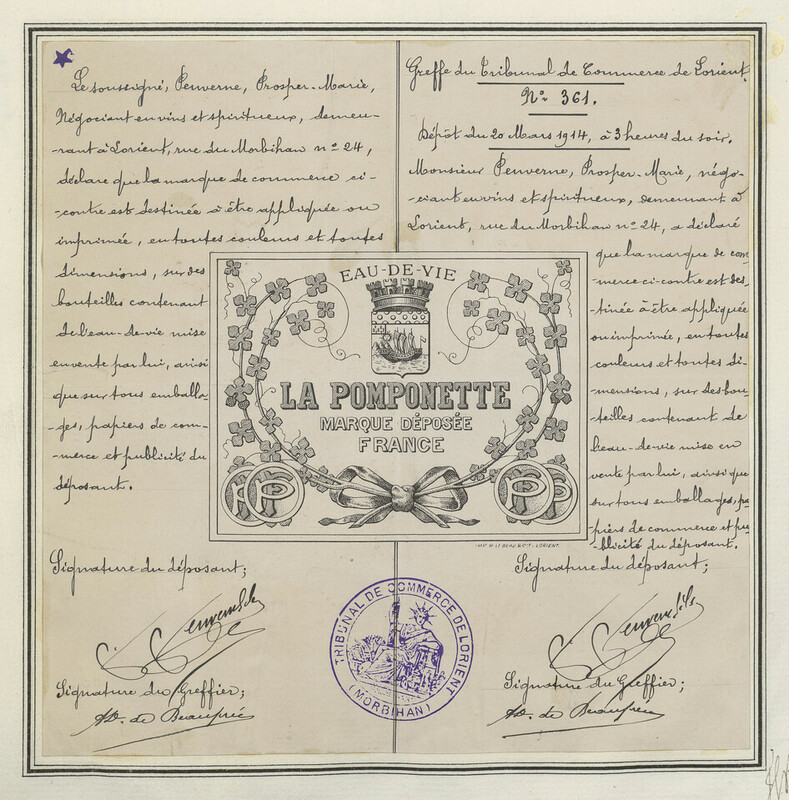 Le soussigné, Penverne, Prosper-Marie,
Négociant en vins et spiritueux, demeu-
-rant à Lorient, rue du Morbihan n° 24,
déclare que la marque de commerce ci-
-contre est destinée à être appliquée ou
imprimée, en toutes couleurs et toutes
dimensions, sur des
bouteilles contenant
de l'eau-de-vie mise
en vente par lui, ainsi
que sur tous emballa-
-ges, papiers de com-
-merce et publicité du
déposant.
Signature du déposant;
Signature du Greffier;
Ad. de Beaufrée
Greffe du Tribunal de Commerce de Lorient.
N° 361.
Dépôt du 20 Mars 1914, à 3 heures du soir.
Monsieur Penverne, Prosper-Marie, négo-
-ciant en vins et spiritueux, demeurant à
Lorient, rue du Morbihan n° 24, a déclaré
que la marque de com-
-merce ci-contre est des-
-tinée à être appliquée
ou imprimée, en toutes
couleurs et toutes di-
-mensions, sur des bou-
-teilles contenant de
l'eau-de-vie mise en
vente par lui, ainsi que
sur tous emballages, pa-
-piers de commerce et pu-
-blicité du déposant.
Signature du déposant;
Signature du Greffier;
Ad. de Beaufrée
EAU-DE-VIE
LA POMPONETTE
MARQUE DÉPOSÉE
FRANCE
P P
TRIBUNAL DE COMMERCE DE LORIENT
(MORBIHAN)